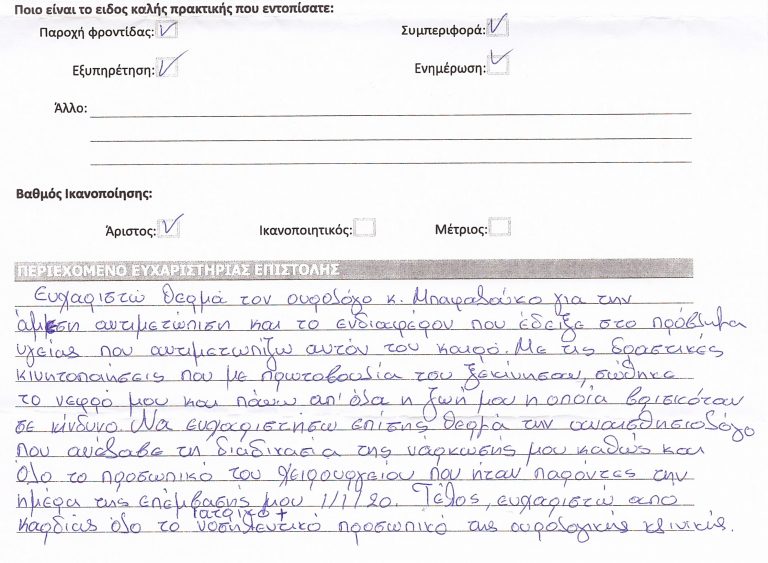 Ποιο είναι το ειδος καλής πρακτικής που εντοπίσατε:
Παροχή φροντίδας: Συμπεριφορά:
Εξυπηρέτηση: Ενημέρωση:
Άλλο:
Βαθμός Ικανοποίησης:
Άριστος: Ικανοποιητικός: Μέτριος:
ΠΕΡΙΕΧΟΜΕΝΟ ΕΥΧΑΡΙΣΤΗΡΙΑΣ ΕΠΙΣΤΟΛΗΣ
Ευχαριστώ θερμά τον ουρολόγο κ. για την
άμεση αντιμετώπιση και το ενδιαφέρον που έδειξε στο πρόβλημα
υγείας που αντιμετωπίζω αυτόν τον καιρό. Με τις δραστικές
κινητοποιήσεις που με πρωτοβουλία του ξεκίνησαν, σώθηκε
το νεφρό μου και πάνω απ' όλα η ζωή μου η οποία βρισκόταν
σε κίνδυνο. Να ευχαριστήσω επίσης θερμά την αναισθησιολόγο
που ανέλαβε τη διαδικασία της νάρκωσής μου καθώς και
όλο το προσωπικό του χειρουργείου που ήταν παρόντες την
ημέρα της επέμβασής μου 1/1/20. Τέλος, ευχαριστώ από
καρδιάς όλο το ιατρικό + νοσηλευτικό προσωπικό της ουρολογικής κλινικής.